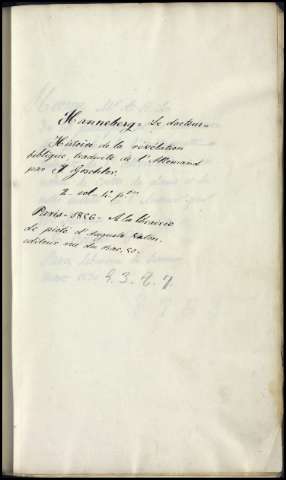 Hanneberg - Le docteur -
Histoire de la révélation
biblique traduite de l'Allemand
par J Goschler.
2 vol.
Paris - 1856 - A la librairie
de piété d'Auguste Vaton
éditeur rue du Bac, 50 -